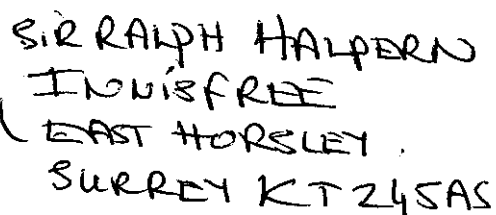 SIR RALPH HALPERN
INNISFREE
EAST HORSLEY.
SURREY KT245AS